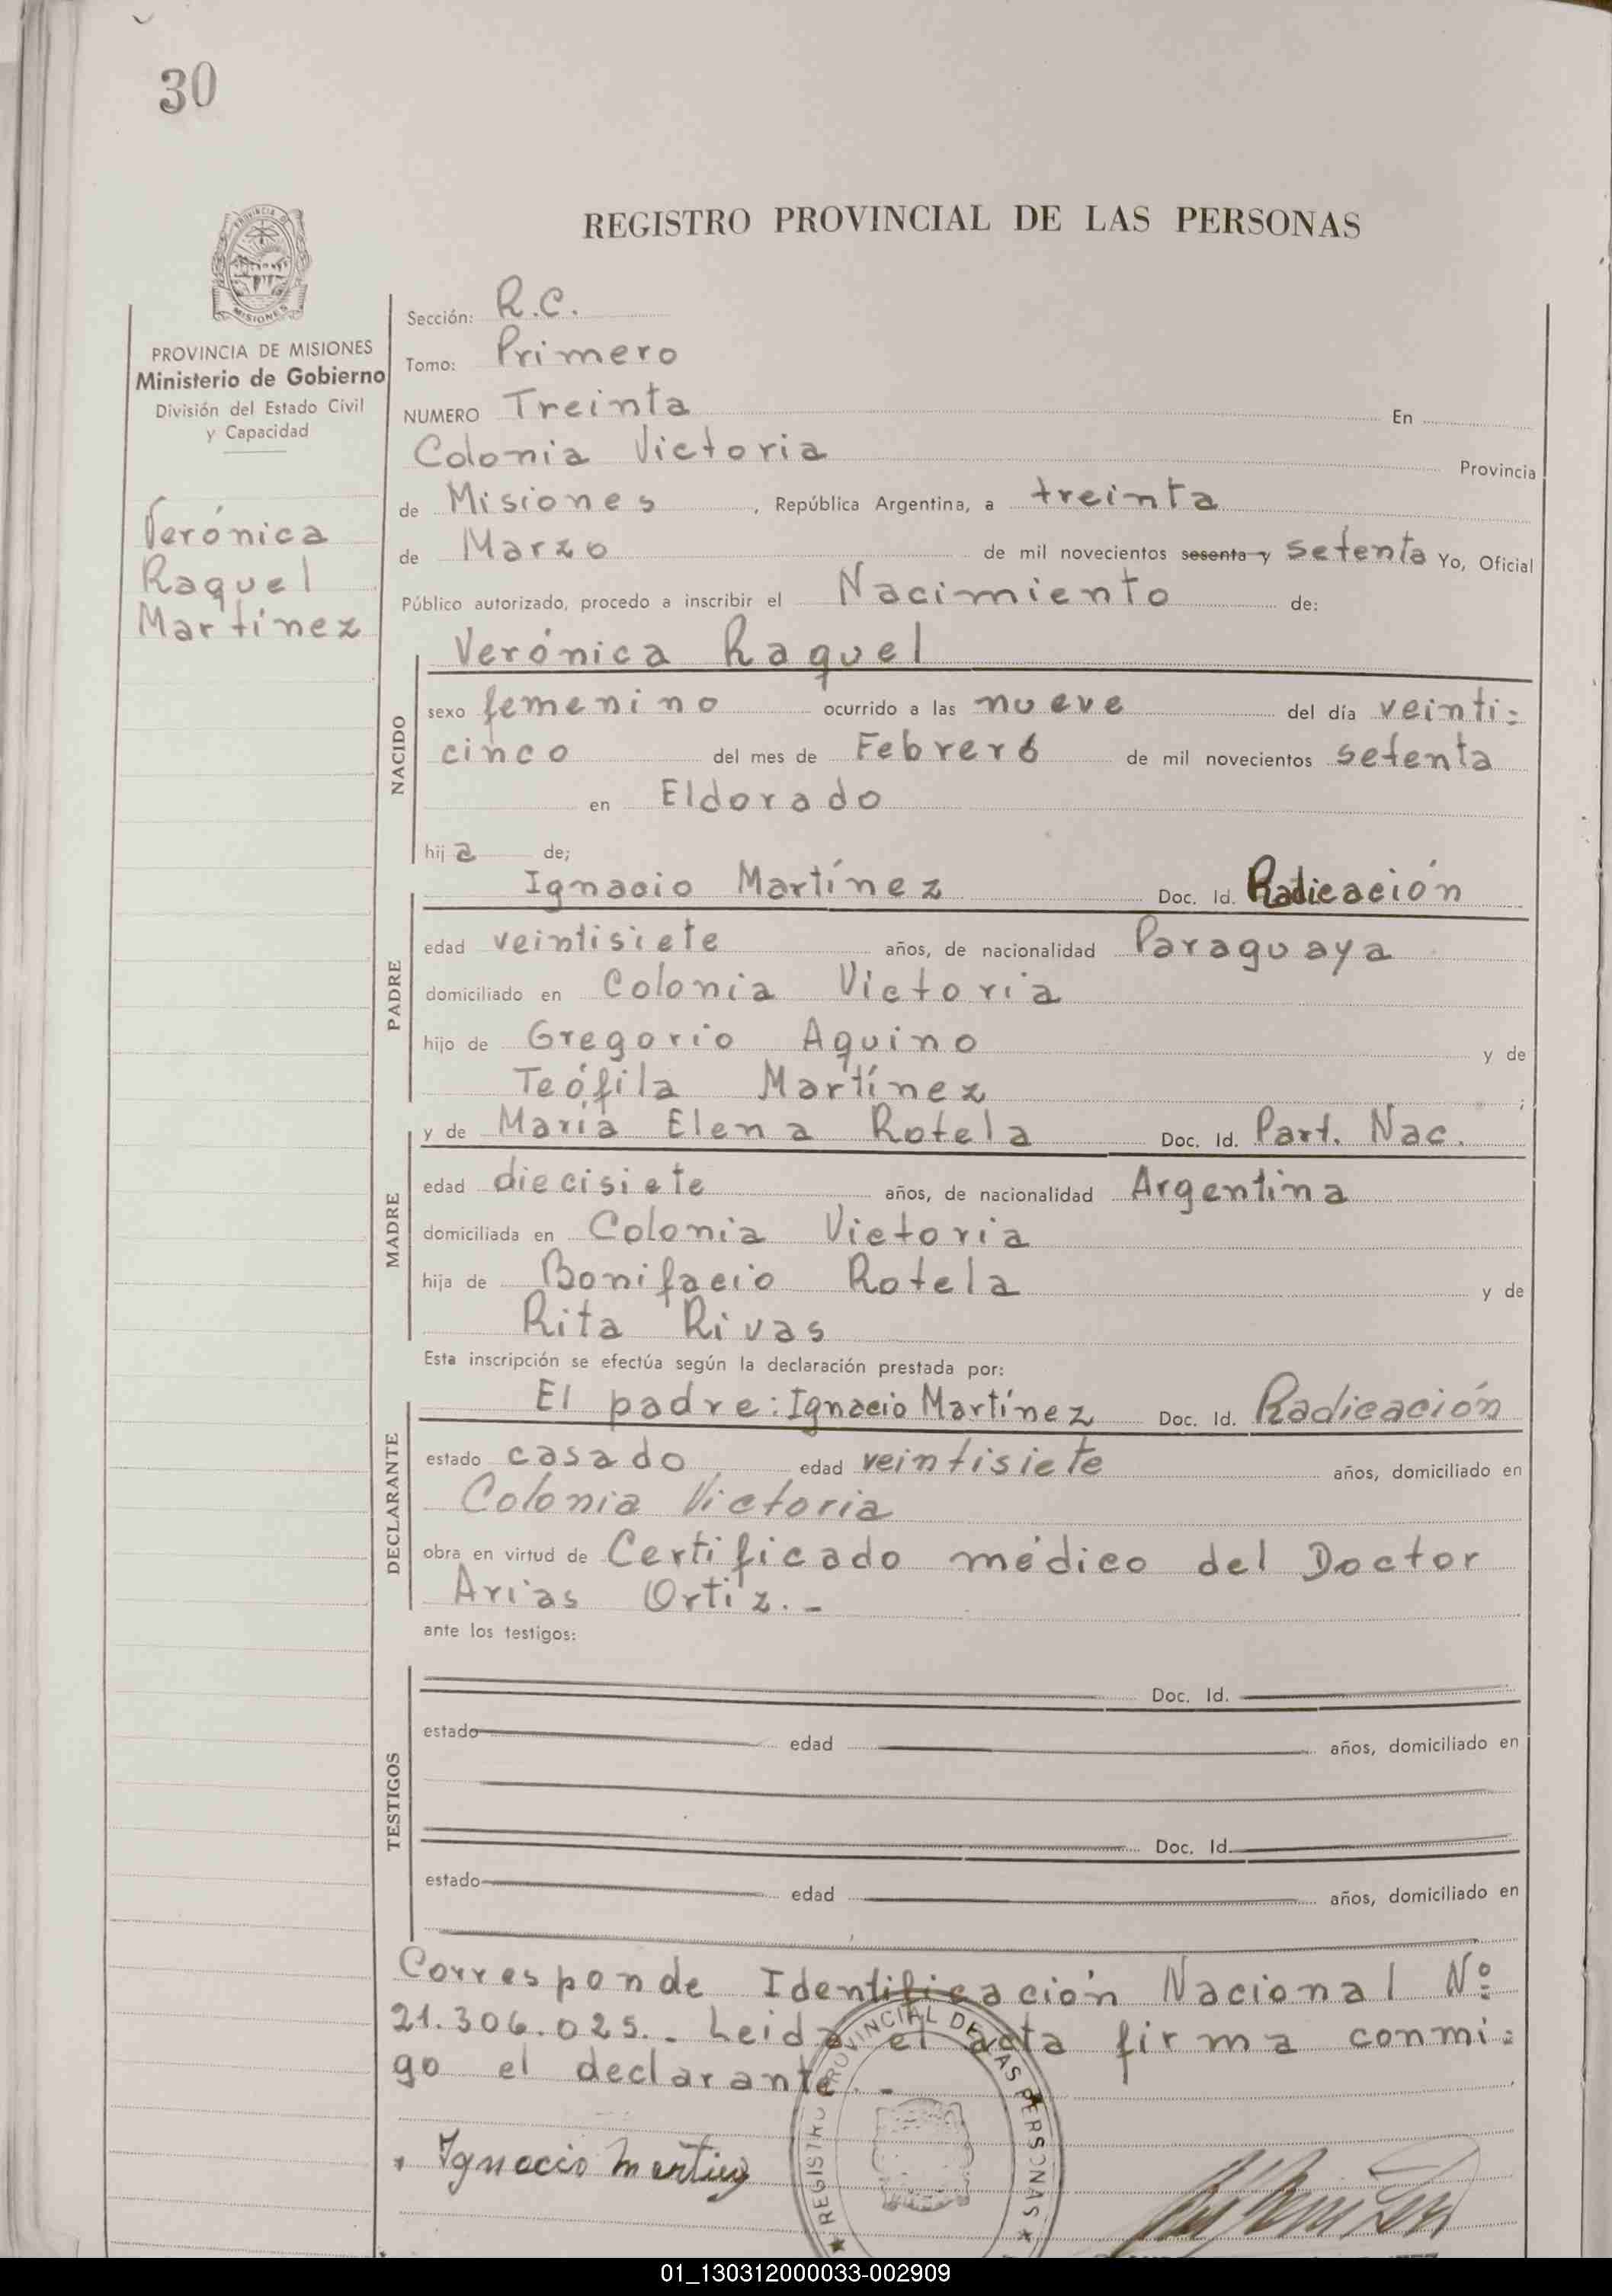 30
PROVINCIA DE MISIONES
REGISTRO PROVINCIAL DE LAS PERSONAS
PROVINCIA DE MISIONES
Ministerio de Gobierno
División del Estado Civil
y Capacidad
Verónica
Raquel
Martínez
Sección: R.C.
Tomo: Primero
NUMERO Treinta En
Colonia Victoria Provincia
de Misiones, República Argentina, a treinta
de Marzo de mil novecientos sesenta y setenta Yo, Oficial
Público autorizado, procedo a inscribir el Nacimiento de:
NACIDO
Verónica Raquel
sexo femenino ocurrido a las nueve del día veinti=
cinco del mes de Febrero de mil novecientos setenta
en Eldorado
hija de;
PADRE
Ignacio Martínez Doc. Id. Radicación
edad veintisiete años, de nacionalidad Paraguaya
domiciliado en Colonia Victoria
hijo de Gregorio Aquino y de
Teófila Martínez ;
MADRE
y de María Elena Rotela Doc. Id. Part. Nac.
edad diecisiete años, de nacionalidad Argentina
domiciliada en Colonia Victoria
hija de Bonifacio Rotela y de
Rita Rivas
Esta inscripción se efectúa según la declaración prestada por:
DECLARANTE
El padre: Ignacio Martínez Doc. Id. Radicación
estado casado edad veintisiete años, domiciliado en
Colonia Victoria
obra en virtud de Certificado médico del Doctor
Arias Ortiz.-
ante los testigos:
TESTIGOS
Doc. Id.
estado edad años, domiciliado en
Doc. Id.
estado edad años, domiciliado en
Corresponde Identificación Nacional Nº
21.306.025.- Leida el acta firma conmi=
go el declarante.-
Ignacio Martinez
REGISTRO PROVINCIAL DE LAS PERSONAS
01_130312000033-002909